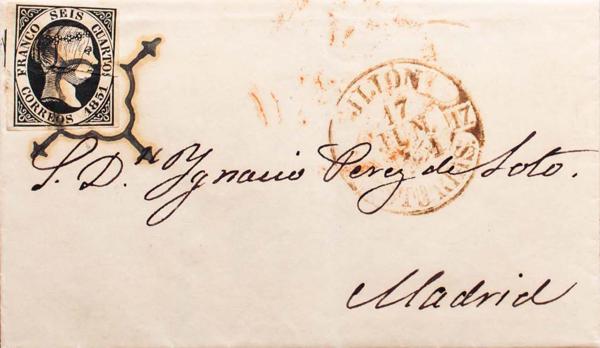 FRANCO SEIS CUARTOS
CORREOS 1851
JIJON
17
JUN
1851
ASTURIAS
S. D. Ygnacio Perez de Soto.
Madrid